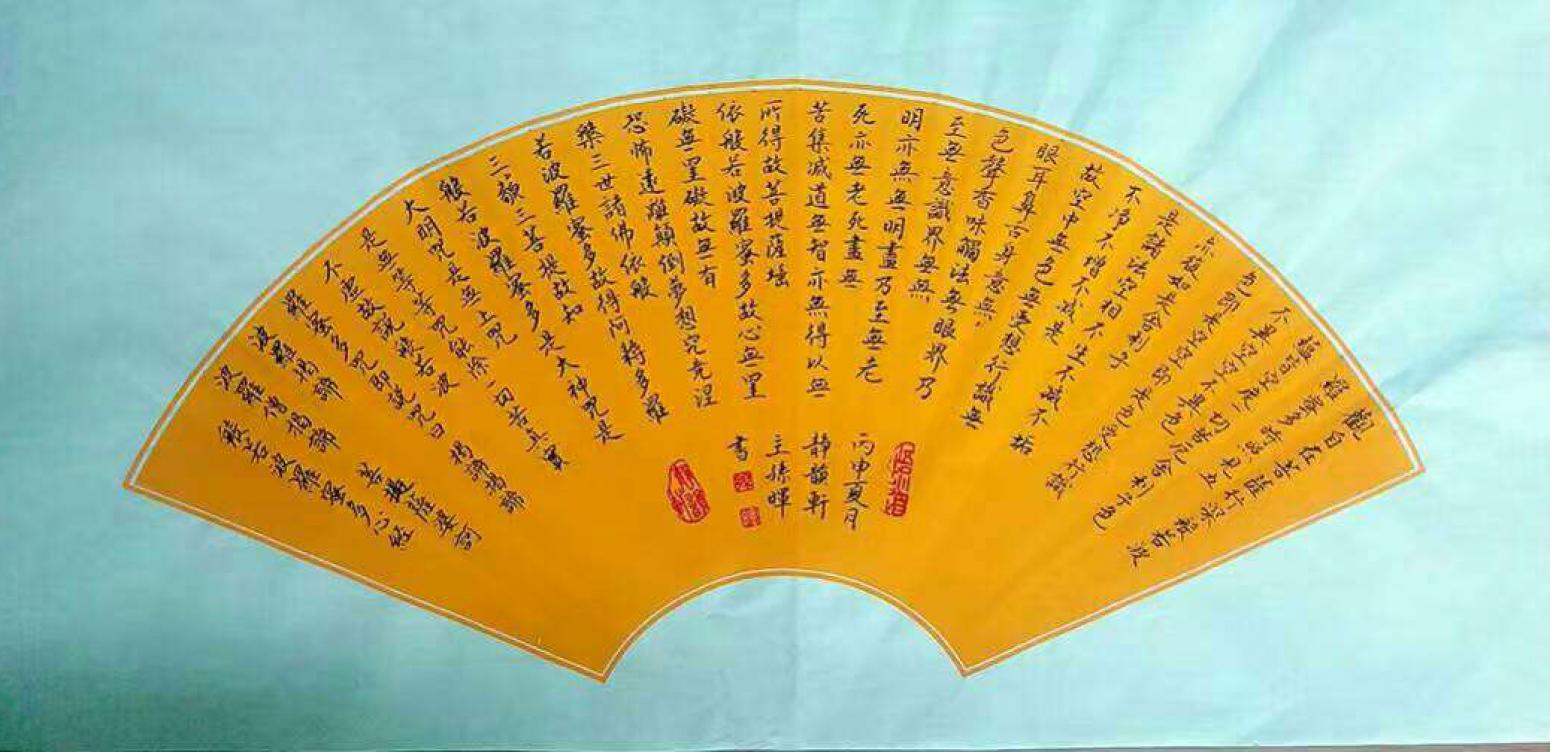 觀自在菩薩行深般若波
羅蜜多時照見五
蘊皆空度一切苦厄舍利子色
不異空空不異色
色即是空空即是色受想行識
亦複如是舍利子
是諸法空相不生不滅不垢
不净不增不減是
故空中無色無受想行識無
眼耳鼻舌身意無
色聲香味觸法無眼界乃
至無意識界無無
明亦無無明盡乃至無老
死亦無老死盡無
苦集滅道無智亦無得以無
所得故菩提薩埵
依般若波羅蜜多故心無罣
礙無罣礙故無有
恐怖遠離顛倒夢想究竟涅
槃三世諸佛依般
若波羅蜜多故得阿耨多羅
三藐三菩提故知
般若波羅蜜多是大神咒是
大明咒是無上咒
是無等等咒能除一切苦真實
不虛故説般若波
羅蜜多咒即説咒曰 揭諦揭諦
波羅揭諦
波羅僧揭諦 菩提薩婆訶
般若波羅蜜多心經
丙申夏月
静 軒
主孫暉
書